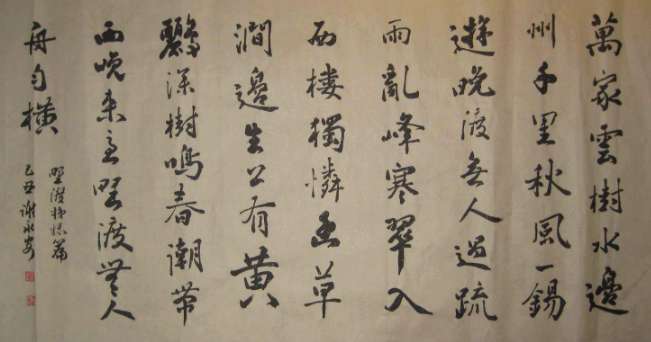 萬家雲樹水邊
州千里秋風一錫
遊晚渡無人過疏
雨亂峰寒翠入
西樓獨憐幽草
澗邊生上有黄
鸝深樹鳴春潮带
雨晚来急野渡無人
舟自横
野渡篇
己丑謝永